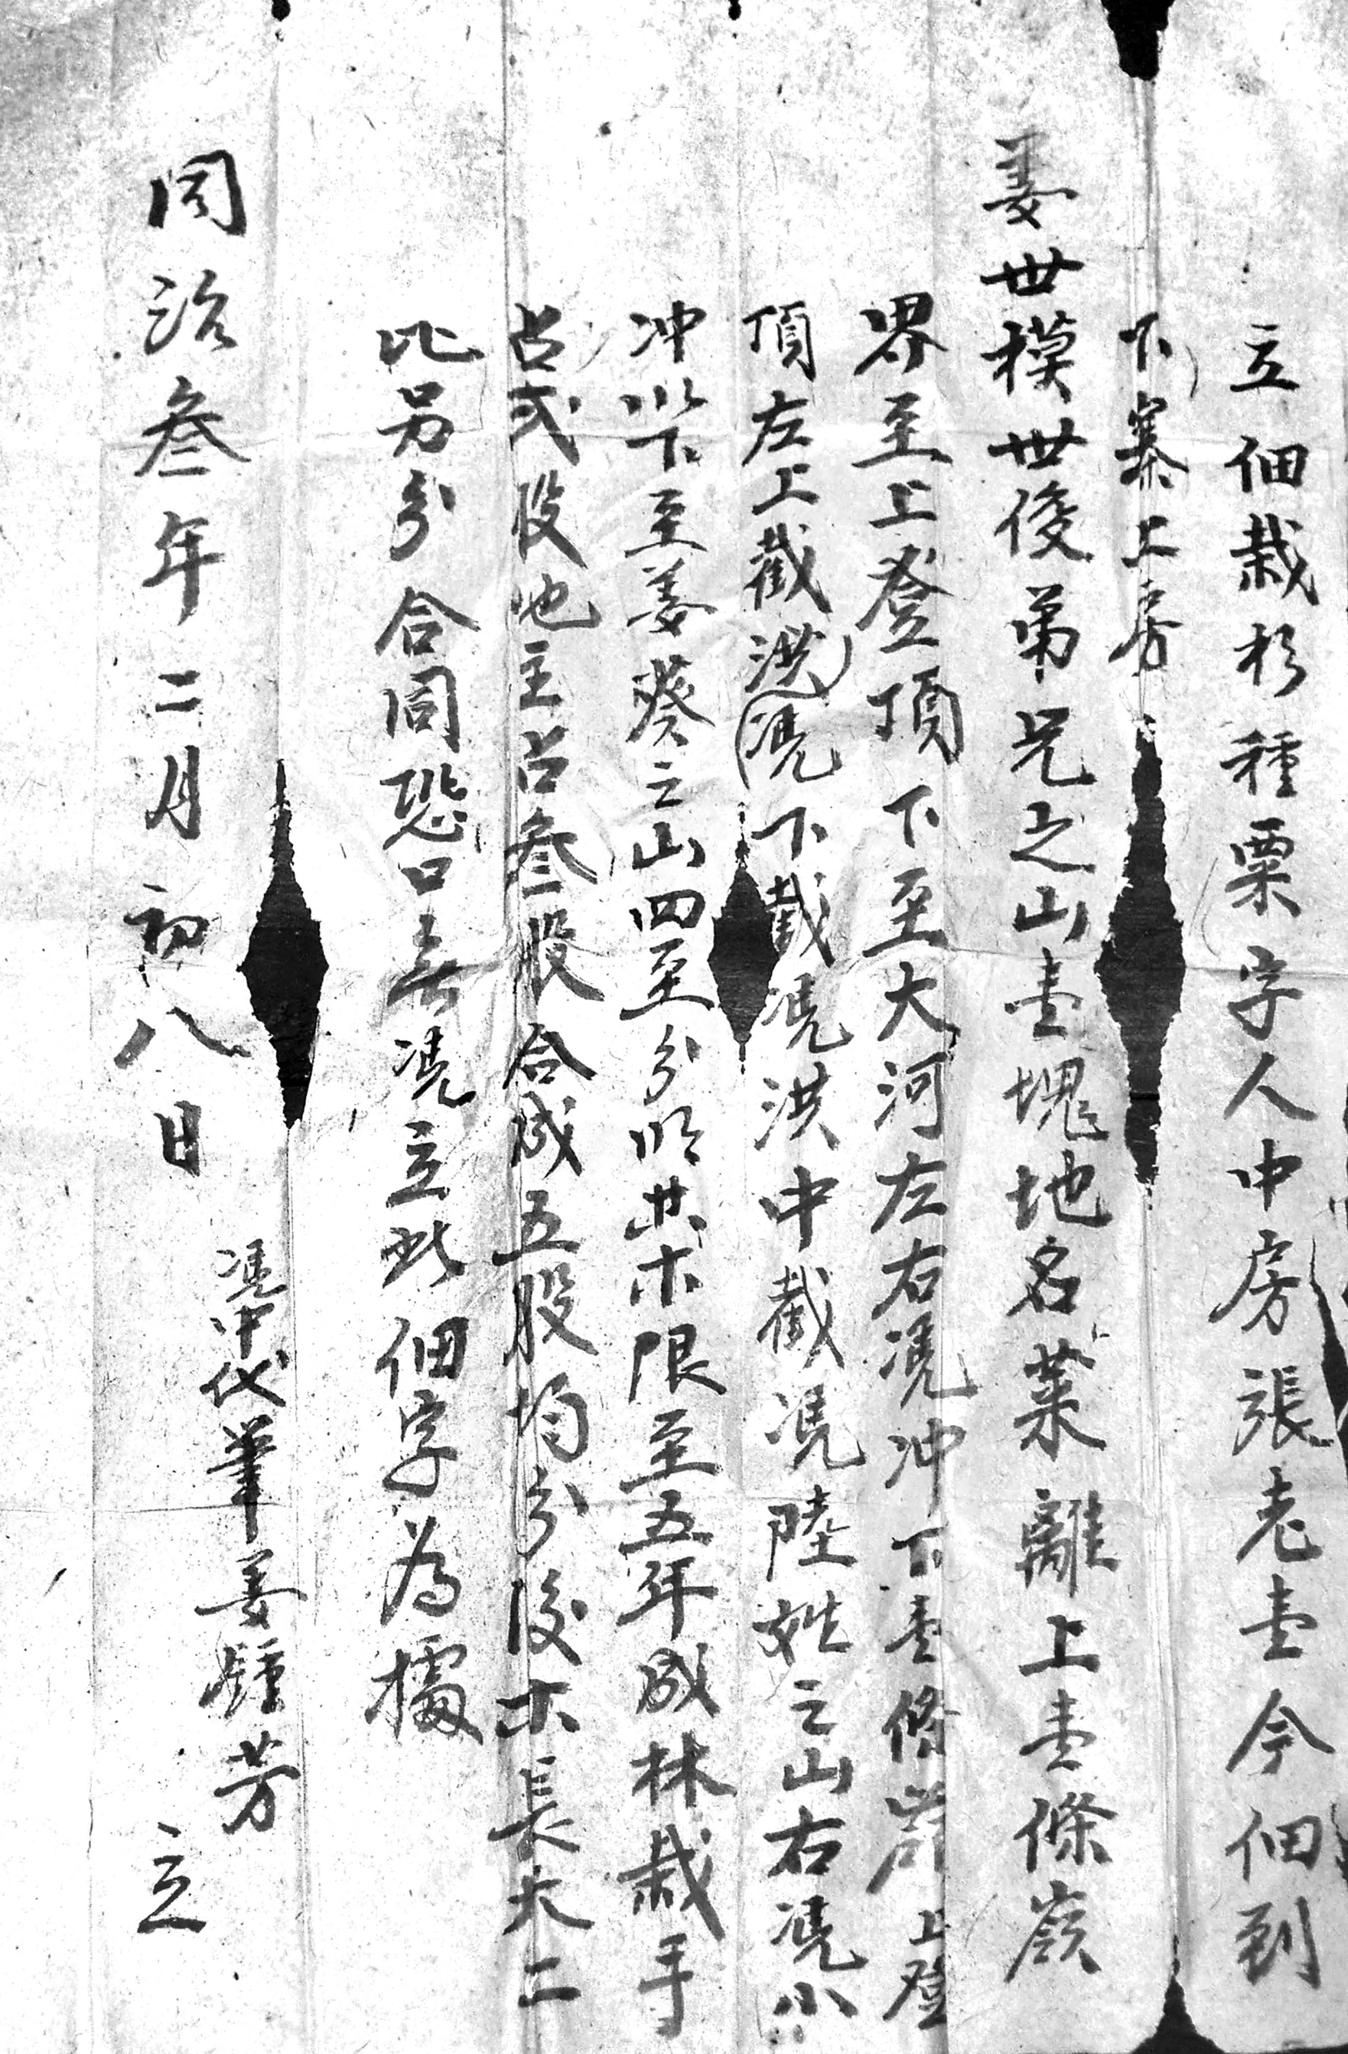 立佃栽杉種粟字人中房張老壹今佃到
下寨上房
姜世模世俊弟兄之山壹塊地名菜離上壹條嶺
界至上登頂下至大河左右凴冲下壹條嶺上登
頂左上截凴下截凴洪中截凴陸姓之山右凴小
冲以下至姜葵之山四至分明其木限至五年成林栽手
占弍股地主占叁股合成五股均分後木長大二
比另分合同恐口無凴立此佃字為據
凴中代筆姜鍾芳
同治叁年二月初八日 立